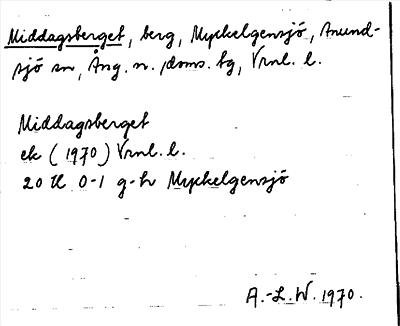 Middagsberget, berg, Myckelgensjö, Anund-
sjö sn, Ång. n. doms. tg, Vrnl. l.
Middagsberget
ek (1970) Vrnl. l.
20 H 0-1 g-h Myckelgensjö
A.-L. W. 1970.